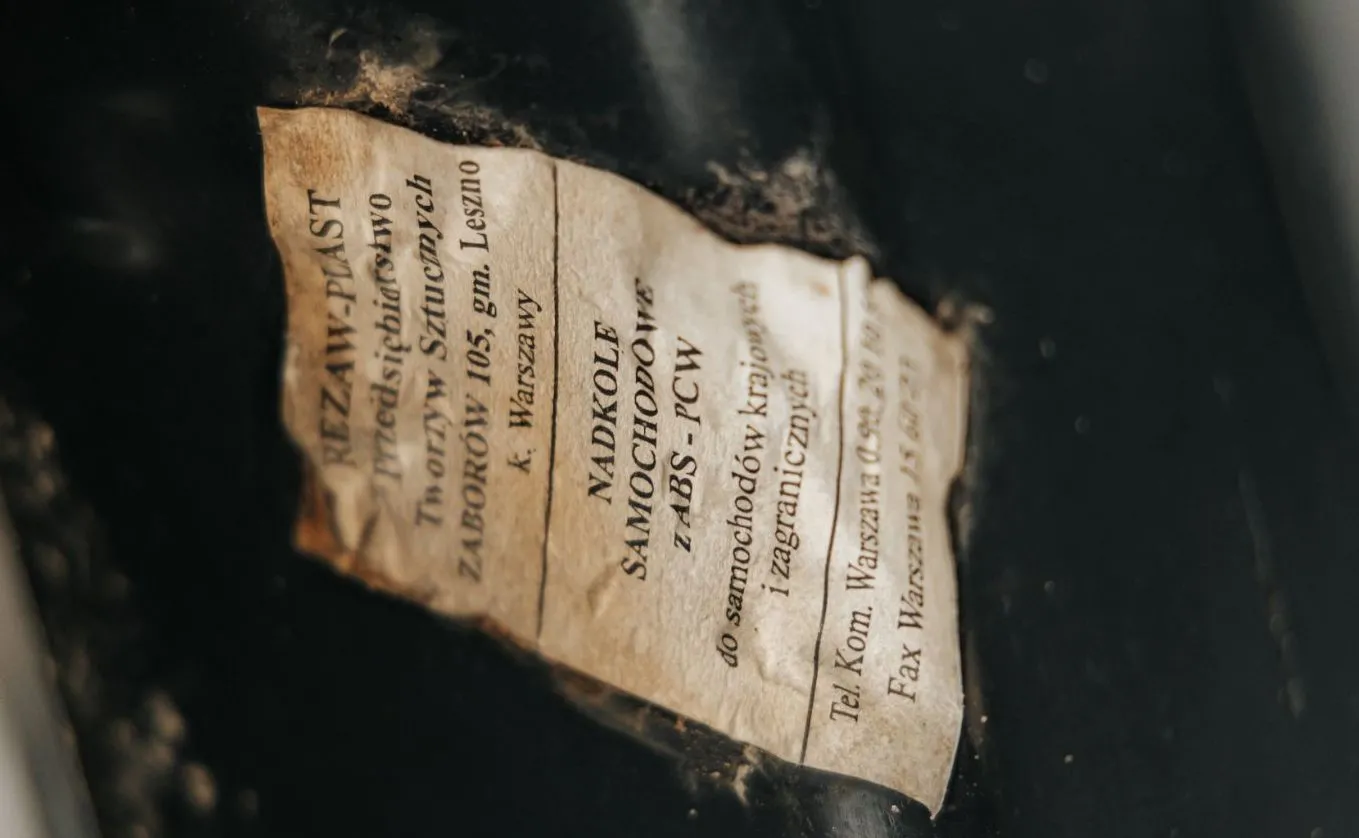 REZAW-PLAST
Przedsiębiorstwo
Tworzyw Sztucznych
ZABORÓW 105, gm. Leszno
k. Warszawy
NADKOLE
SAMOCHODOWE
z ABS - PCW
do samochodów krajowych
i zagranicznych
Tel. Kom. Warszawa
Fax Warszawa